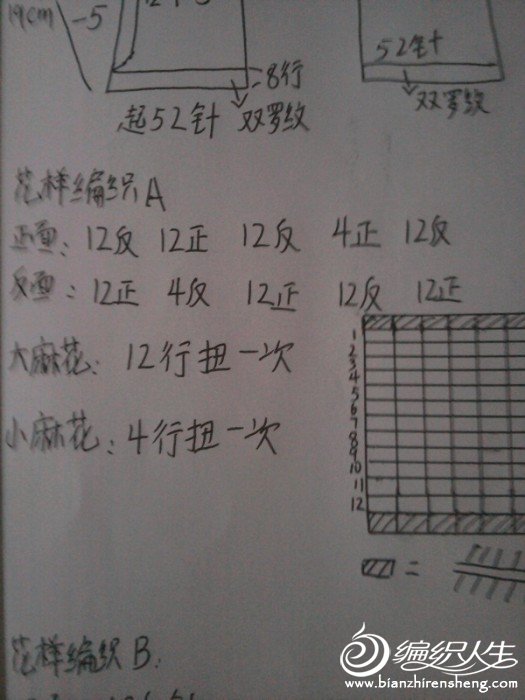 19cm
-5
8行
52针
双罗纹
起52针 双罗纹
花样编织A
正面: 12反 12正 12反 4正 12反
反面: 12正 4反 12正 12反 12正
大麻花: 12行扭一次
小麻花: 4行扭一次
1
2
3
4
5
6
7
8
9
10
11
12
=
花样编织B.
编织人生
www.bianzhirensheng.com